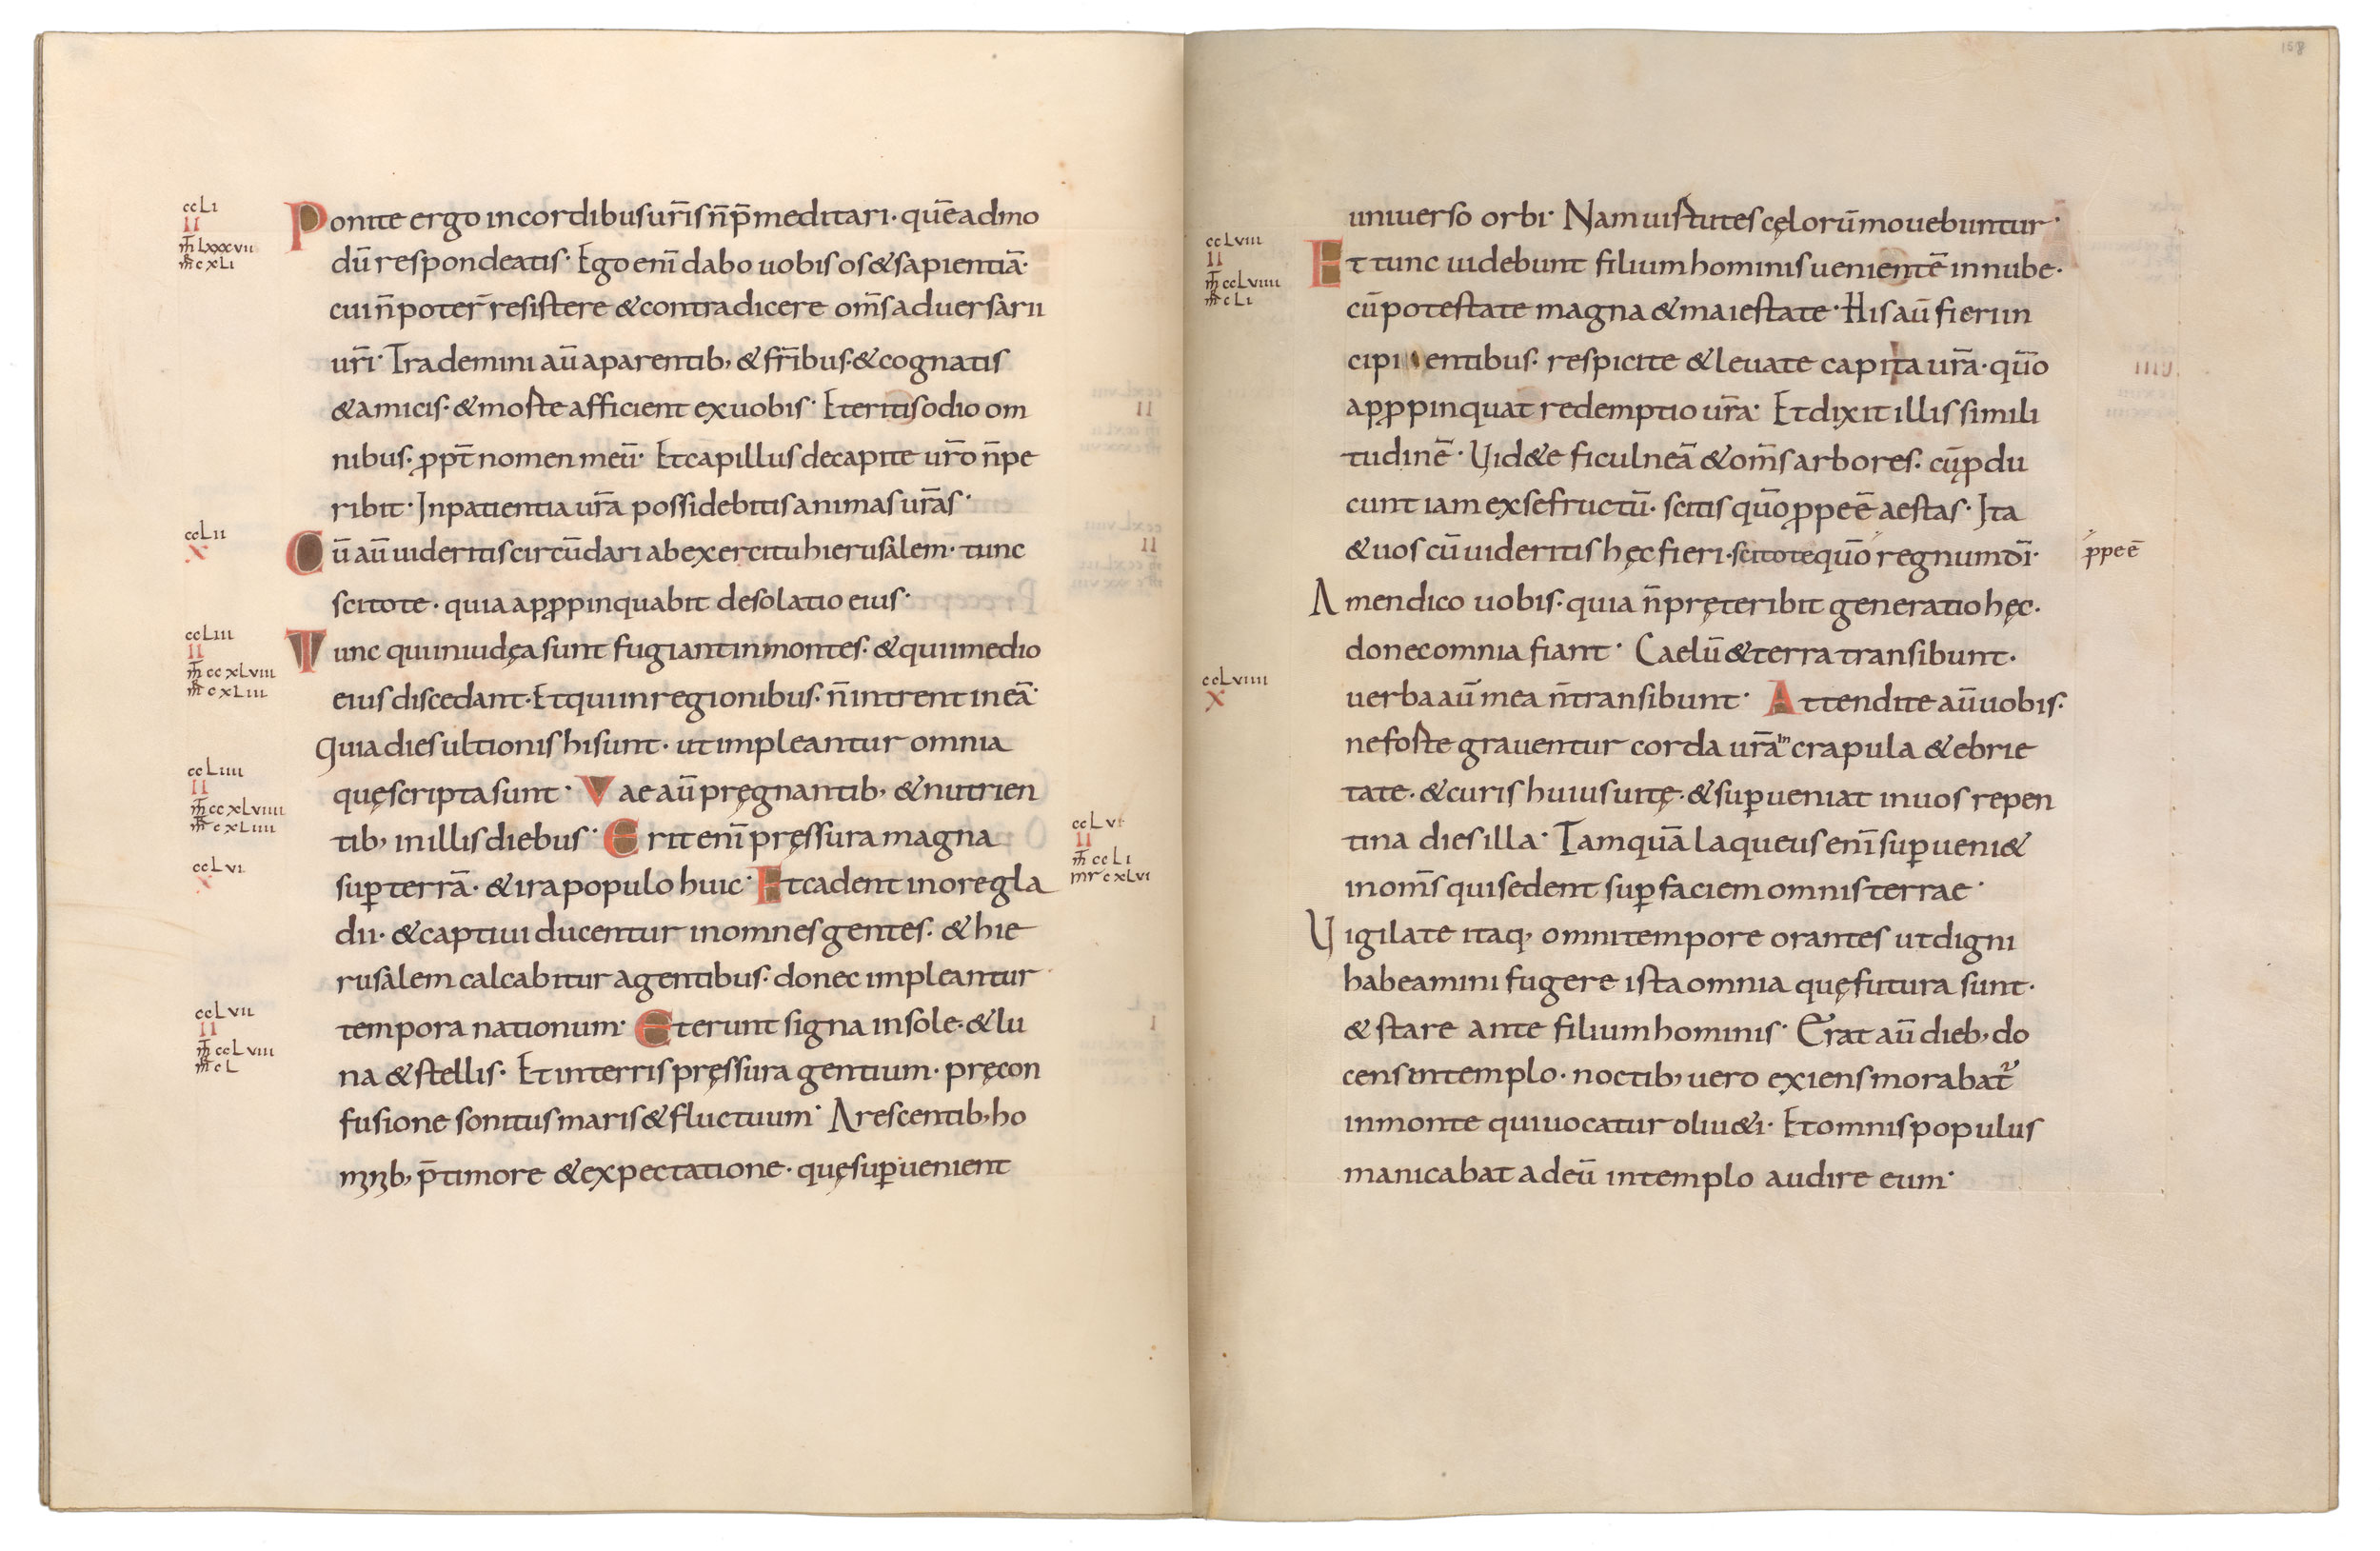 ccLI
II
m̄ Lxxxvii
m̄r cxLi
Ponite ergo in cordibus ur̄is n̄ p̄meditari · quēadmo
dū respondeatis · Ego enī dabo uobis os & sapientiā ·
cui n̄ poter̄ resistere & contradicere om̄s aduersarii
ur̄i · Trademini aū a parentib; & fr̄ibus · & cognatis
& amicis · & morte afficient ex uobis · Et eritis odio om
nibus · ppt̄ nomen meū · Et capillus de capite ur̄o n̄ pe
ribit · In patientia ur̄a possidebitis animas ur̄as ·
ccLii
x
Cū aū uideritis circūdari ab exercitu hierusalem · tunc
scitote · quia appropinquabit desolatio eius ·
ccLiii
II
m̄ ccxLviii
m̄r cxLiii
Tunc qui in iudęa sunt fugiant in montes · & qui in medio
eius discedant · Et qui in regionibus · n̄ intrent in eā ·
Quia dies ultionis hi sunt · ut impleantur omnia
ccLiiii
II
m̄ ccxLviiii
m̄r cxLiiii
quę scripta sunt · Vae aū pręgnantib; & nutrien
tib; in illis diebus · Erit enī pressura magna
ccLv
II
m̄ ccLi
mr cxLvi
ccLvi
x
sup terrā · & ira populo huic · Et cadent in ore gla
dii · & captiui ducentur in omnes gentes · & hie
rusalem calcabitur a gentibus · donec impleantur
ccLvii
II
m̄ ccLviii
m̄r cL
tempora nationum · Et erunt signa in sole · & lu
na & stellis · Et in terris pręssura gentium · pręcon
fusione sonitus maris & fluctuum · Arescentib; ho
minib; p̄ timore & expectatione · quę sup uenient
158
uniuerso orbi · Nam uirtutes cęlorū mouebuntur ·
ccLviii
II
m̄ ccLviiii
m̄r cLi
Et tunc uidebunt filium hominis uenientē in nube ·
cū potestate magna & maiestate · His aū fieri in
cipientibus · respicite & leuate capita ur̄a · qūo
appropinquat redemptio ur̄a · Et dixit illis simili
tudinē · Uid&e ficulneā & om̄s arbores · cū pdu
cunt iam ex se fructū · scitis qūo ppe ē aestas · Ita
& uos cū uideritis hęc fieri · scitote qūo regnum dī · ppe ē
Amen dico uobis · quia n̄ pręteribit generatio hęc ·
donec omnia fiant · Caelū & terra transibunt ·
ccLviiii
x
uerba aū mea n̄ transibunt · Attendite aū uobis ·
ne forte grauentur corda ur̄a in crapula & ebrie
tate · & curis huius uitę · & sup ueniat in uos repen
tina dies illa · Tamquā laqueus enī sup ueni&
in om̄s qui sedent sup faciem omnis terrae ·
Uigilate itaq; omni tempore orantes ut digni
habeamini fugere ista omnia quę futura sunt ·
& stare ante filium hominis · Erat aū dieb; do
cens in templo · noctib; uero exiens morabat̄
in monte qui uocatur oliu&i · Et omnis populus
manicabat ad eū in templo audire eum ·